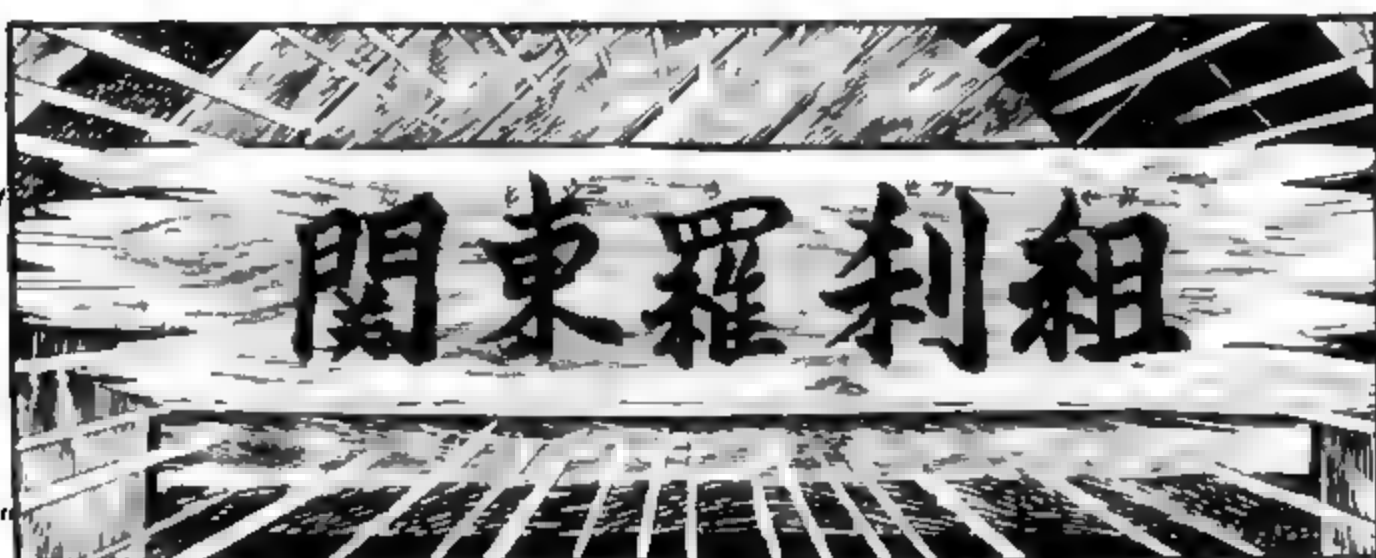 関東羅刹組